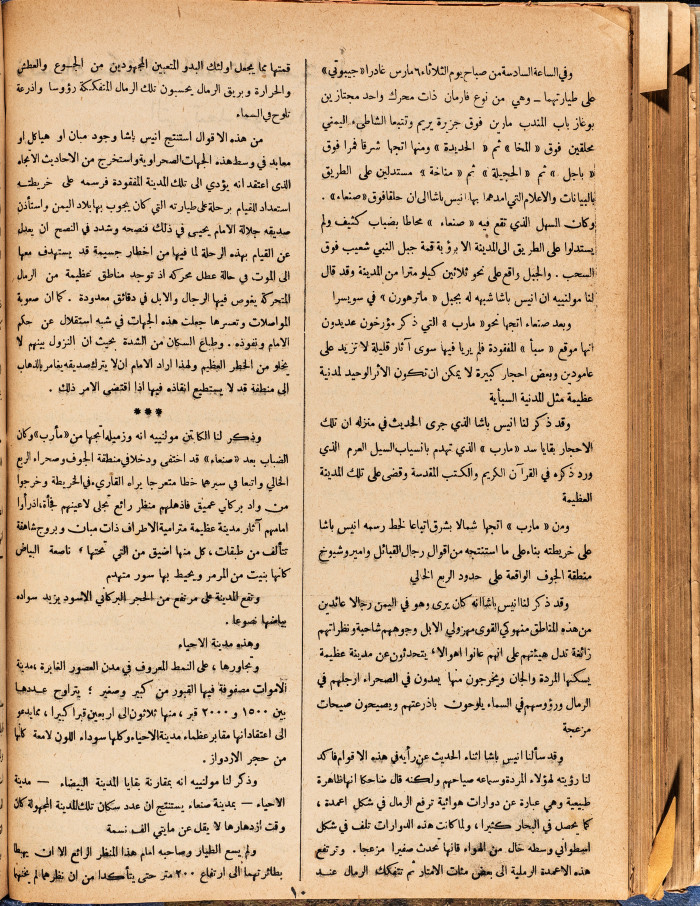 وفي الساعة السادسة من صباح يوم الثلاثاء ٦ مارس غادرا «جيبوتي»
على طيارتهما — وهي من نوع فارمان ذات محرك واحد مجتازين
بوغاز باب المندب مارين فوق جزيرة بريم وتتبعا الشاطىء اليمني
محلقين فوق «المخا» ثم «الحديدة» ومنها اتجها شرقا فمرا فوق
«باجل» ثم «الحجيلة» ثم «مناخة» مستدلين على الطريق
بالبيانات والاعلام التي امدهما بها انيس باشا الى ان حلقا فوق «صنعاء».
وكان السهل الذي تقع فيه «صنعاء» محاطا بضباب كثيف ولم
يستدلوا على الطريق الى المدينة الا برؤية قمة جبل النبي شعيب فوق
السحب. والجبل واقع على نحو ثلاثين كيلو مترا من المدينة وقد قال
لنا مولنييه ان انيس باشا شبهه له بجبل «ماترهورن» في سويسرا
وبعد صنعاء اتجها نحو «مارب» التي ذكر مؤرخون عديدون
انها موقع «سبأ» المفقودة فلم يريا فيها سوى آثار قليلة لا تزيد على
عامودين وبعض احجار كبيرة لا يمكن ان تكون الأثر الوحيد لمدينة
عظيمة مثل المدنية السبأية
وقد ذكر لنا انيس باشا الذي جرى الحديث في منزله ان تلك
الاحجار بقايا سد «مارب» الذي تهدم بانسياب السيل العرم الذي
ورد ذكره في القرآن الكريم والكتب المقدسة وقضى على تلك المدينة
العظيمة
ومن «مارب» اتجها شمالا بشرق اتباعا لخط رسمه انيس باشا
على خريطته بناء على ما استنتجه من اقوال رجال القبائل وامير وشيوخ
منطقة الجوف الواقعة على حدود الربع الخالي
وقد ذكر لنا انيس باشا انه كان يرى وهو في اليمن رجالا عائدين
من هذه المناطق منهوكي القوى مهزولي الابل وجوههم شاحبة ونظراتهم
زائغة تدل هيئتهم على انهم عانوا اهوالا، يتحدثون عن مدينة عظيمة
يسكنها المردة والجان ويخرجون منها يعدون في الصحراء ارجلهم في
الرمال ورؤوسهم في السماء يلوحون باذرعتهم ويصيحون صيحات
مزعجة
وقد سألنا انيس باشا اثناء الحديث عن رأيه في هذه الاقوام فاكد
لنا رؤيته لهؤلاء المردة وسماعه صياحهم ولكنه قال ضاحكا انها ظاهرة
طبيعية وهي عبارة عن دوارات هوائية ترفع الرمال في شكل اعمدة،
كما يحصل في البحار كثيرا، ولما كانت هذه الدوارات تلف في شكل
اسطواني وسطه خال من الهواء فانها تحدث صفيرا مزعجا. وترتفع
هذه الاعمدة الرملية الى بعض مئات الامتار ثم تتفكك الرمال عند
قمتها مما يجعل اولئك البدو المتعبين المجهودين من الجوع والعطش
والحرارة وبريق الرمال يحسبون تلك الرمال المتفككة رؤوسا واذرعة
تلوح في السماء
من هذه الاقوال استنتج انيس باشا وجود مبان او هياكل او
معابد في وسط هذه الجهات الصحراوية واستخرج من الاحاديث الاتجاه
الذي اعتقد انه يؤدي الى تلك المدينة المفقودة فرسمه على خريطته
استعداد للقيام برحلة على طيارته التي كان يجوب بها بلاد اليمن واستأذن
صديقه جلالة الامام يحيى في ذلك فنصحه وشدد في النصح ان يعدل
عن القيام بهذه الرحلة لما فيها من اخطار جسيمة قد يستهدف معها
الى الموت في حالة عطل محركه اذ توجد مناطق عظيمة من الرمل
المتحركة يغوص فيها الرجال والابل في دقائق معدودة. كما ان صعوبة
المواصلات وتعسرها جعلت هذه الجهات في شبه استقلال عن حكم
الامام ونفوذه. وطباع السكان من الشدة بحيث ان النزول بينهم لا
يخلو من الخطر العظيم ولهذا اراد الامام ان لا يترك صديقه يغامر بالذهاب
الى منطقة قد لا يستطيع انقاذه فيها اذا اقتضى الامر ذلك.
***
وذكر لنا الكابتن مولنييه انه وزميله اتجها من «مأرب» وكان
الضباب بعد «صنعاء» قد اختفى ودخلا في منطقة الجوف وصحراء الربع
الخالي واتبعا في سيرهما خطا متعرجا يراه القارىء في الخريطة وخرجوا
من واد بركاني عميق فاذهلهم منظر رائع تجلى لاعينهم فجأة، اذ رأوا
امامهم آثار مدينة عظيمة مترامية الاطراف ذات مبان وبروج شاهقة
تتألف من طبقات، كل منها اضيق من التي تحتها، ناصعة البياض
كانها بنيت من المرمر ويحيط بها سور منهدم
وتقع المدينة على مرتفع من الحجر البركاني الاسود يزيد سواده
بياضها نصوعا.
وهذه مدينة الاحياء
وتجاورها، على النمط المعروف في مدن العصور الغابرة، مدينة
الاموات مصفوفة فيها القبور من كبير وصغير، يتراوح عددها
بين ١٥٠٠ و ٢٠٠٠ قبر، منها ثلاثون الى اربعين قبرا كبيرا، مما يدعو
الى اعتقادانها مقابر عظماء مدينة الاحياء وكلها سوداء اللون لامعة كلها
من حجر الاردواز.
وذكر لنا مولنييه انه بمقارنة بقايا المدينة البيضاء — مدينة
الاحياء — بمدينة صنعاء يستنتج ان عدد سكان تلك المدينة المجهولة كان
وقت ازدهارها لا يقل عن مايتي الف نسمة
ولم يسع الطيار وصاحبه امام هذا المنظر الرائع الا ان يهبطا
بطائرتهما الى ارتفاع ٢٠٠ متر حتى يتأكدا من ان نظرهما لم يخنها
١٠